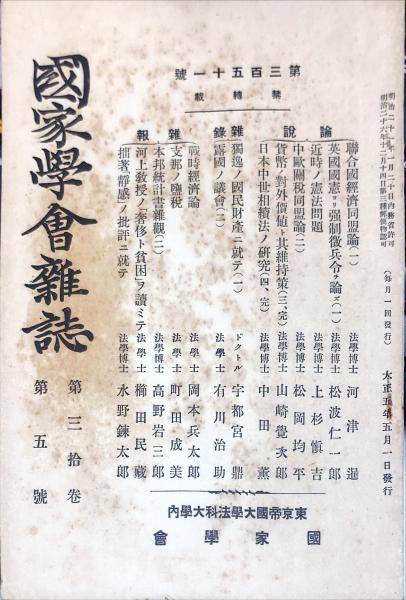 第三百五十一號
禁轉載
明治二十年一月二十日内務省許可
明治二十六年十二月十四日第三種郵便物認可
(毎月一回發行)
大正五年五月一日發行
論說
聯合國經濟同盟論(一) 法學博士 河津暹
英國國憲ヨリ强制徵兵令ヲ論ズ(一) 法學博士 松波仁一郎
近時ノ憲法問題 法學博士 上杉愼吉
中歐關稅同盟論(二) 法學博士 松岡均平
貨幣ノ對外價値ト其維持策(三、完) 法學博士 山崎覺次郎
日本中世相續法ノ硏究(四、完) 法學博士 中田薰
雜錄
獨逸ノ國民財產ニ就テ(一) ドクトル 宇都宮鼎
露國ノ議會(二) 法學士 有川治助
雜報
戰時經濟論 法學士 岡本兵太郎
支那ノ鹽稅 法學士 町田成美
本邦統計書雜觀(二) 法學博士 高野岩三郎
河上敎授ノ「奢侈ト貧困」ヲ讀ミテ 法學士 櫛田民藏
拙著「靜感」ノ批評ニ就テ 法學博士 水野鍊太郎
國家學會雜誌
第三拾卷
第五號
東京帝國大學法科大學內
國家學會